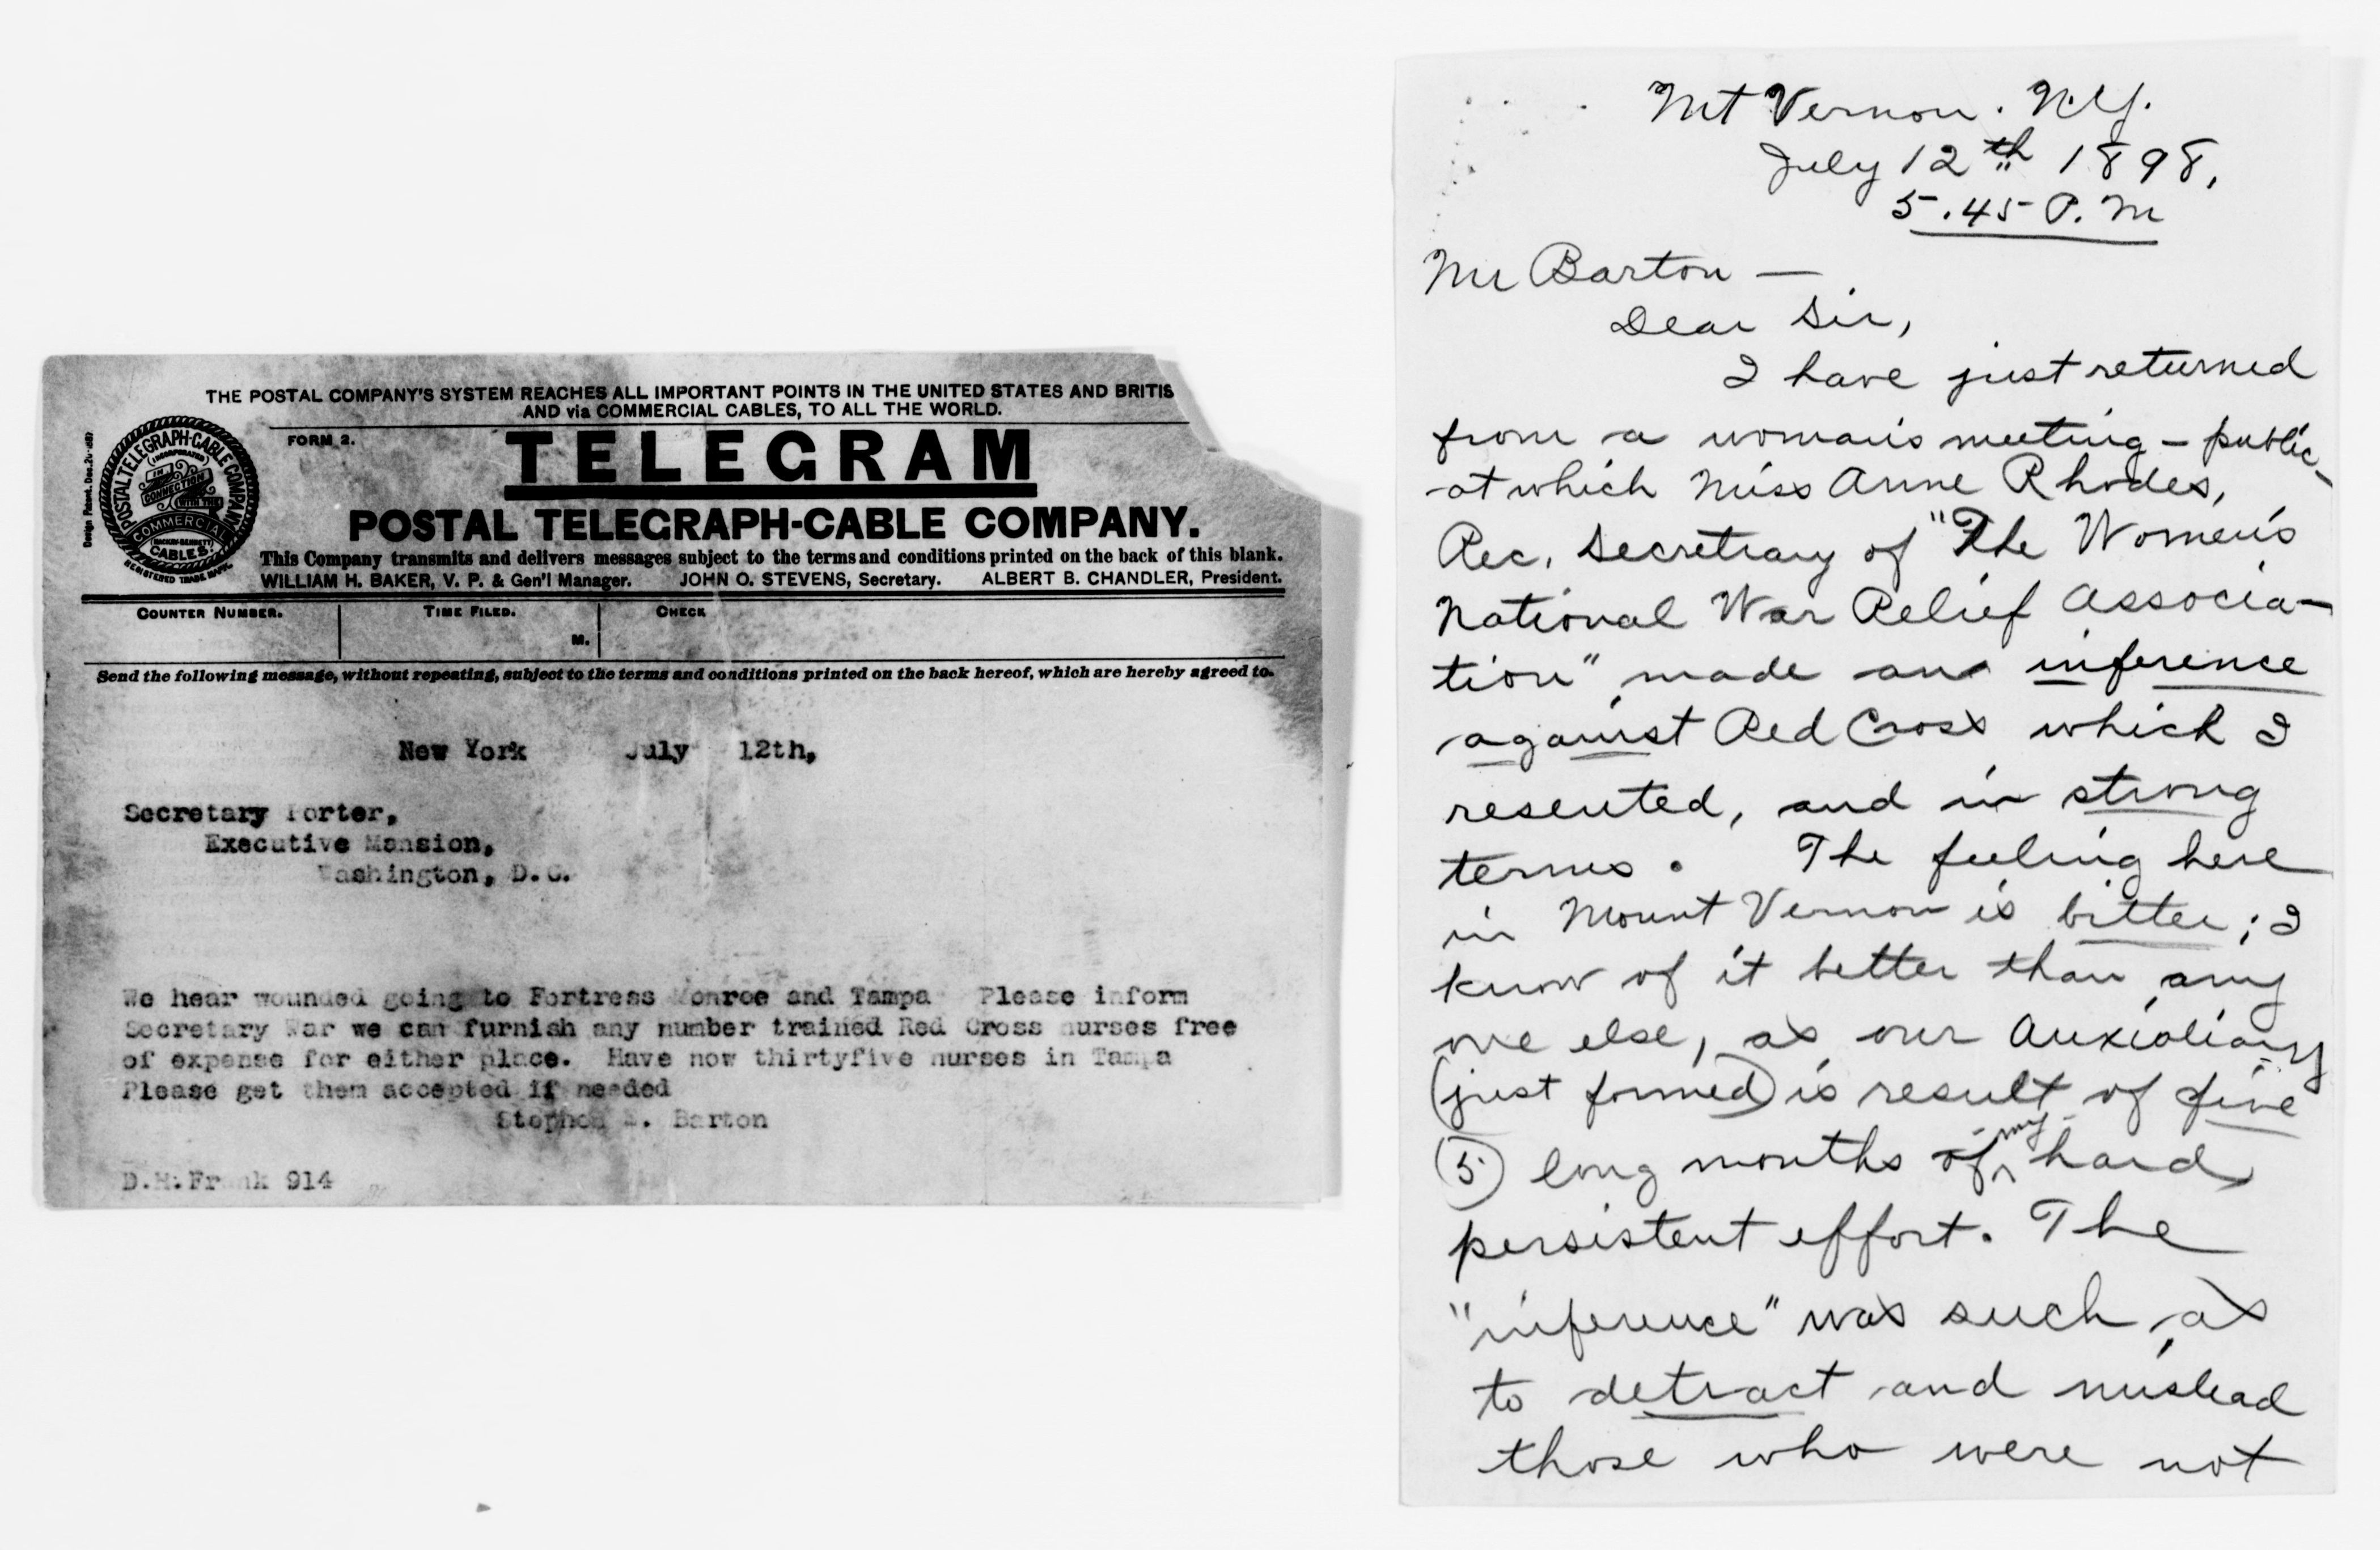 THE POSTAL COMPANY'S SYSTEM REACHES ALL IMPORTANT POINTS IN THE UNITED STATES AND BRITIS
AND via COMMERCIAL CABLES, TO ALL THE WORLD.
FORM 2.
TELEGRAM
POSTAL TELEGRAPH-CABLE COMPANY.
This Company transmits and delivers messages subject to the terms and conditions printed on the back of this blank.
WILLIAM H. BAKER, V. P. & Gen'l Manager. JOHN O. STEVENS, Secretary. ALBERT B. CHANDLER, President.
POSTAL TELEGRAPH-CABLE COMPANY
(INCORPORATED)
IN
CONNECTION
WITH THE
COMMERCIAL
(MACKAY-BENNETT)
CABLES.
REGISTERED TRADE MARK.
Design Patent.
COUNTER NUMBER. TIME FILED. CHECK
M.
Send the following message, without repeating, subject to the terms and conditions printed on the back hereof, which are hereby agreed to.
New York July 12th,
Secretary Porter,
Executive Mansion,
Washington, D.C.
We hear wounded going to Fortress Monroe and Tampa Please inform
Secretary War we can furnish any number trained Red Cross nurses free
of expense for either place. Have now thirtyfive nurses in Tampa
Please get them accepted if needed
Stephen E. Barton
D.H.Frank 914
Mt Vernon. N.Y.
July 12th 1898,
5.45 P.M
Mr Barton —
Dear Sir,
I have just returned
from a woman's meeting - public -
at which Miss Anne Rhodes,
Rec. Secretray of "The Women's
National War Relief Associa-
tion" made an inference
against Red Cross which I
resented, and in strong
terms. The feeling here
in Mount Vernon is bitter; I
know of it better than any
one else, as our Auxialiary
(just formed) is result of five
(5) long months of my hard
persistent effort. The
"inference" was such as
to detract and mislead
those who were not